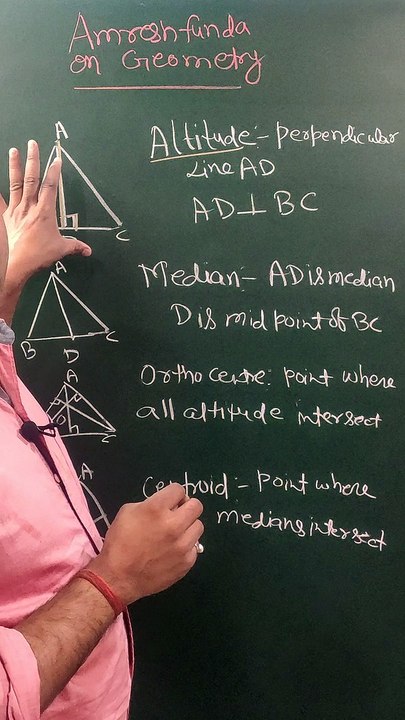 Amresh funda
on Geometry
A
Altitude:- perpendicular
Line AD
AD⊥ BC
C
A
Median:- AD is median
D is mid point of BC
B
D
C
A
Ortho centre: point where
all altitude intersect
O
C
A
Centroid:- point where
medians intersect